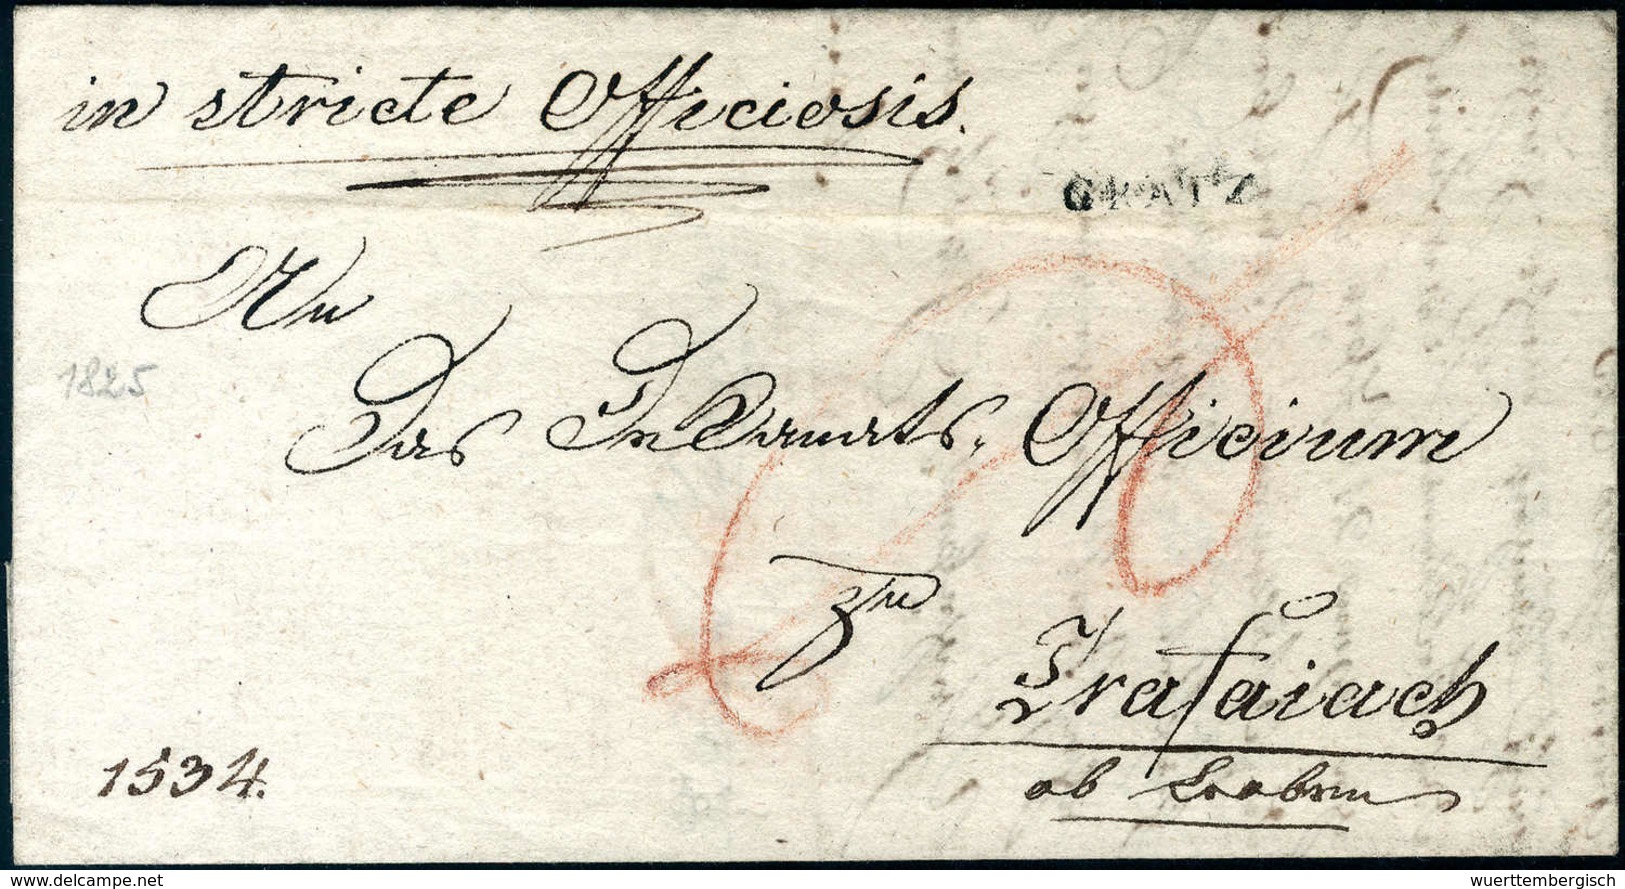 in stricte Officiosis.
GRATZ
An
1825
Das Dekanats-Officium
zu
Trafaiach
ob Leoben
1534.
www.delcampe.net
wuerttembergisch